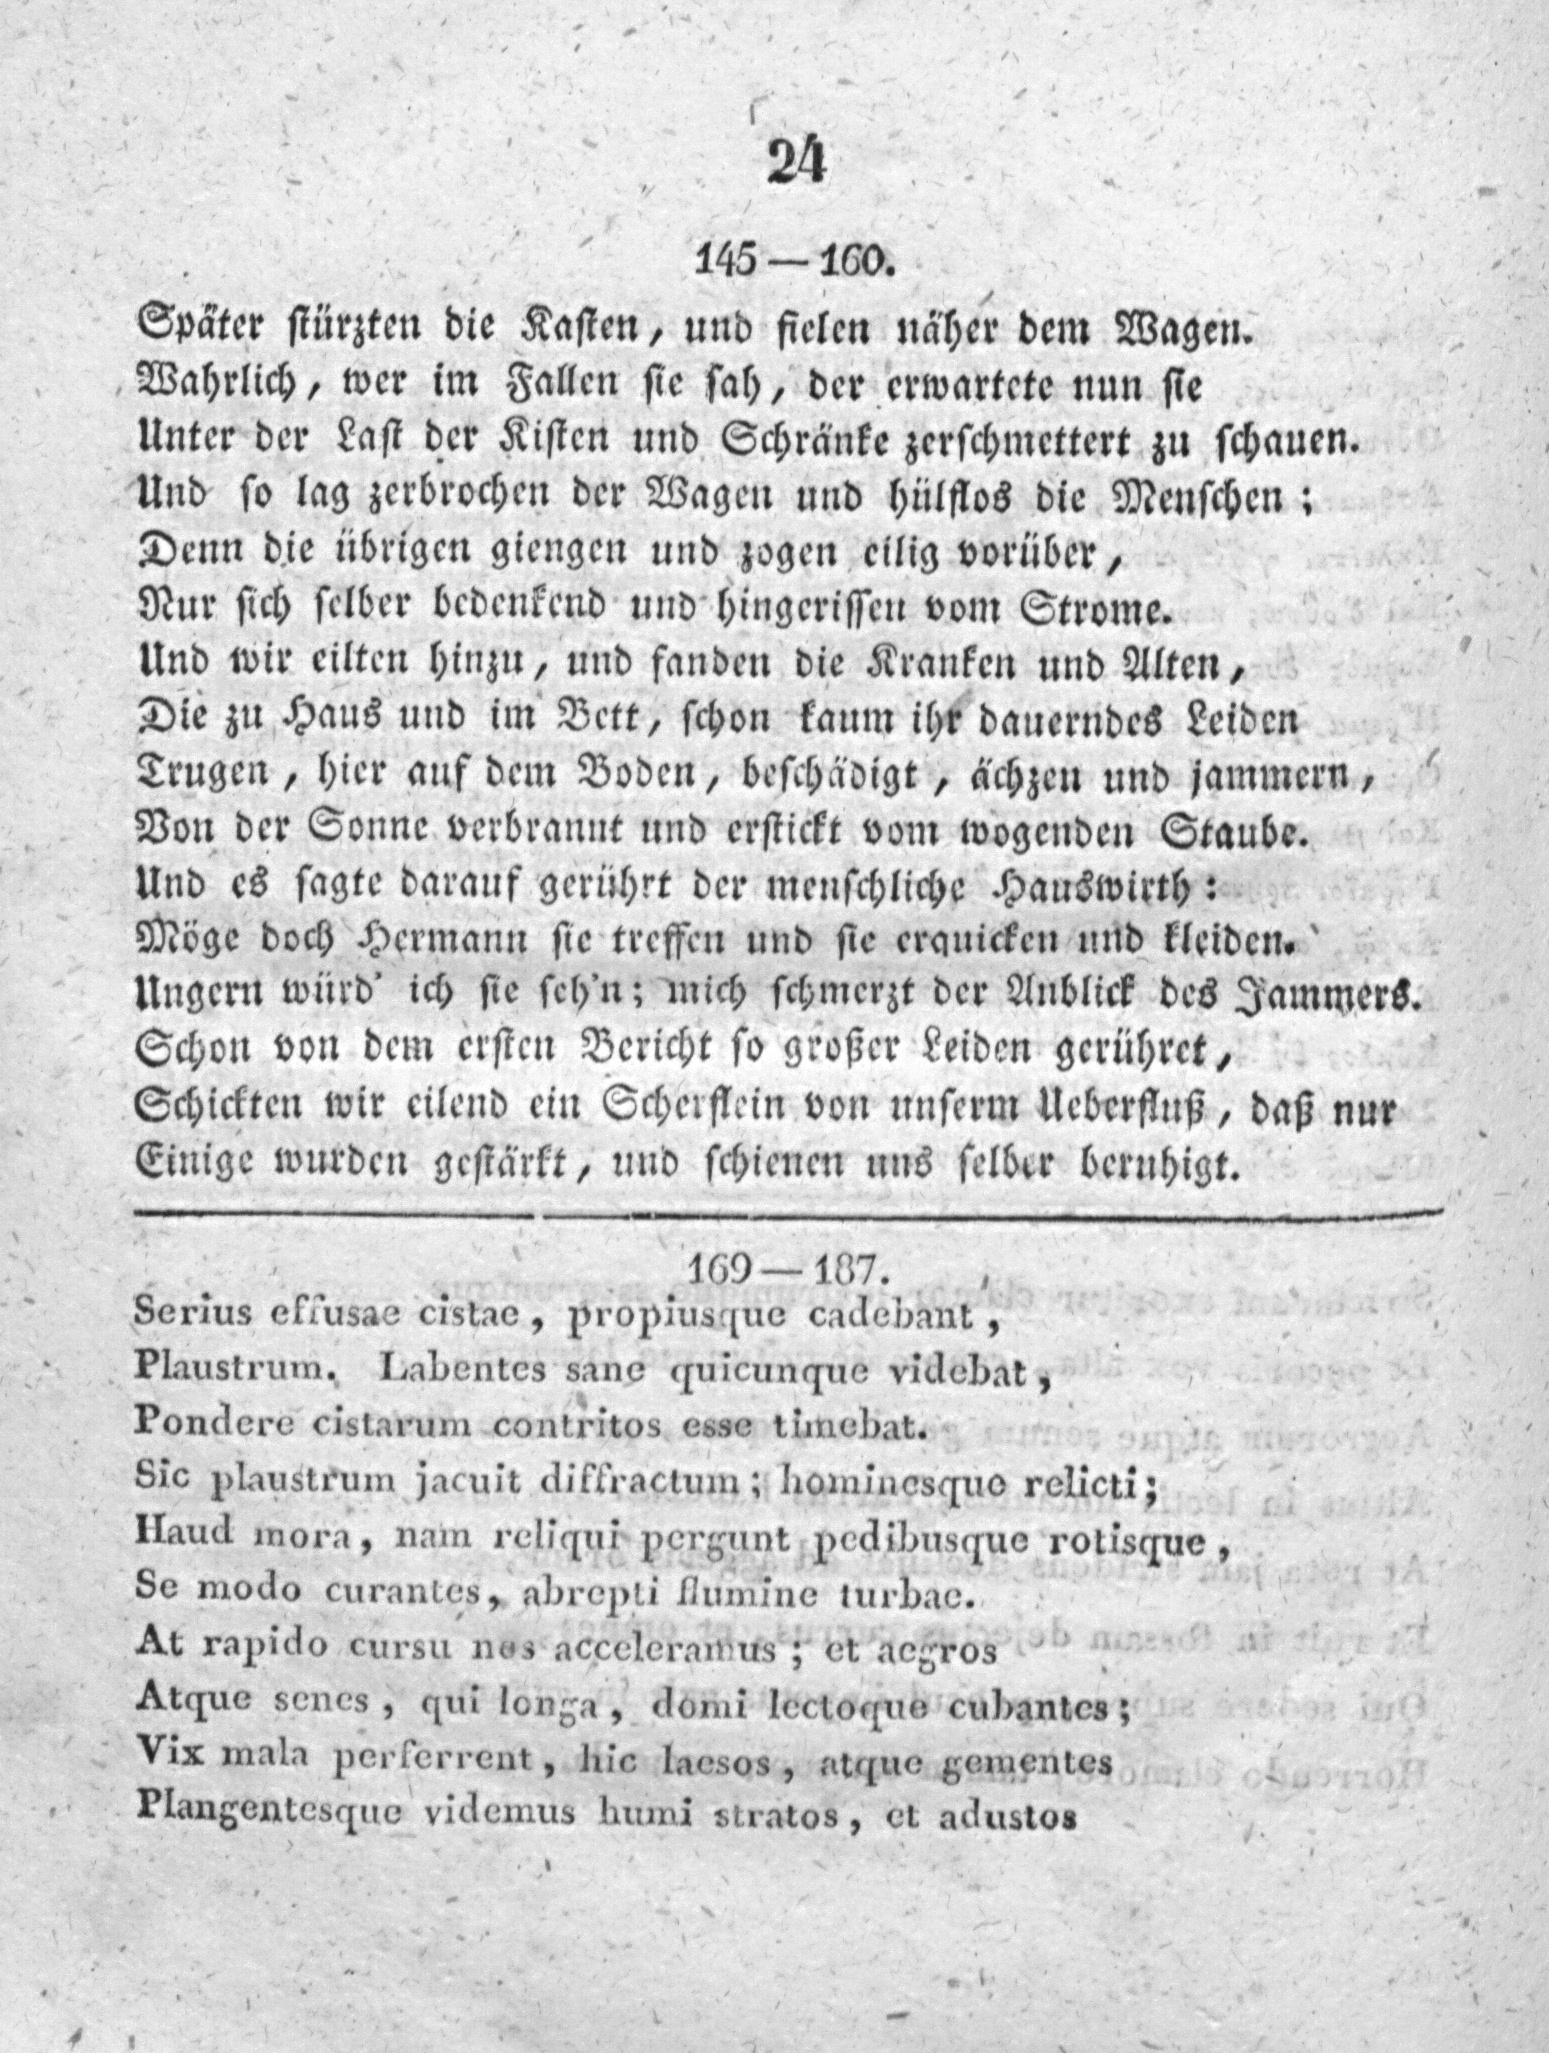 24
145 — 160.
Später stürzten die Kasten, und fielen näher dem Wagen.
Wahrlich, wer im Fallen sie sah, der erwartete nun sie
Unter der Last der Kisten und Schränke zerschmettert zu schauen.
Und so lag zerbrochen der Wagen und hülflos die Menschen;
Denn die übrigen giengen und zogen eilig vorüber,
Nur sich selber bedenkend und hingerissen vom Strome.
Und wir eilten hinzu, und fanden die Kranken und Alten,
Die zu Haus und im Bett, schon kaum ihr dauerndes Leiden
Trugen, hier auf dem Boden, beschädigt, ächzen und jammern,
Von der Sonne verbrannt und erstickt vom wogenden Staube.
Und es sagte darauf gerührt der menschliche Hauswirth:
Möge doch Hermann sie treffen und sie erquicken und kleiden.
Ungern würd' ich sie seh'n; mich schmerzt der Anblick des Jammers.
Schon von dem ersten Bericht so großer Leiden gerühret,
Schickten wir eilend ein Scherflein von unserm Ueberfluß, daß nur
Einige wurden gestärkt, und schienen uns selber beruhigt.
169 — 187.
Serius effusae cistae, propiusque cadebant,
Plaustrum. Labentes sane quicunque videbat,
Pondere cistarum contritos esse timebat.
Sic plaustrum jacuit diffractum; hominesque relicti;
Haud mora, nam reliqui pergunt pedibusque rotisque,
Se modo curantes, abrepti flumine turbae.
At rapido cursu nos acceleramus; et aegros
Atque senes, qui longa, domi lectoque cubantes;
Vix mala perferrent, hic laesos, atque gementes
Plangentesque videmus humi stratos, et adustos